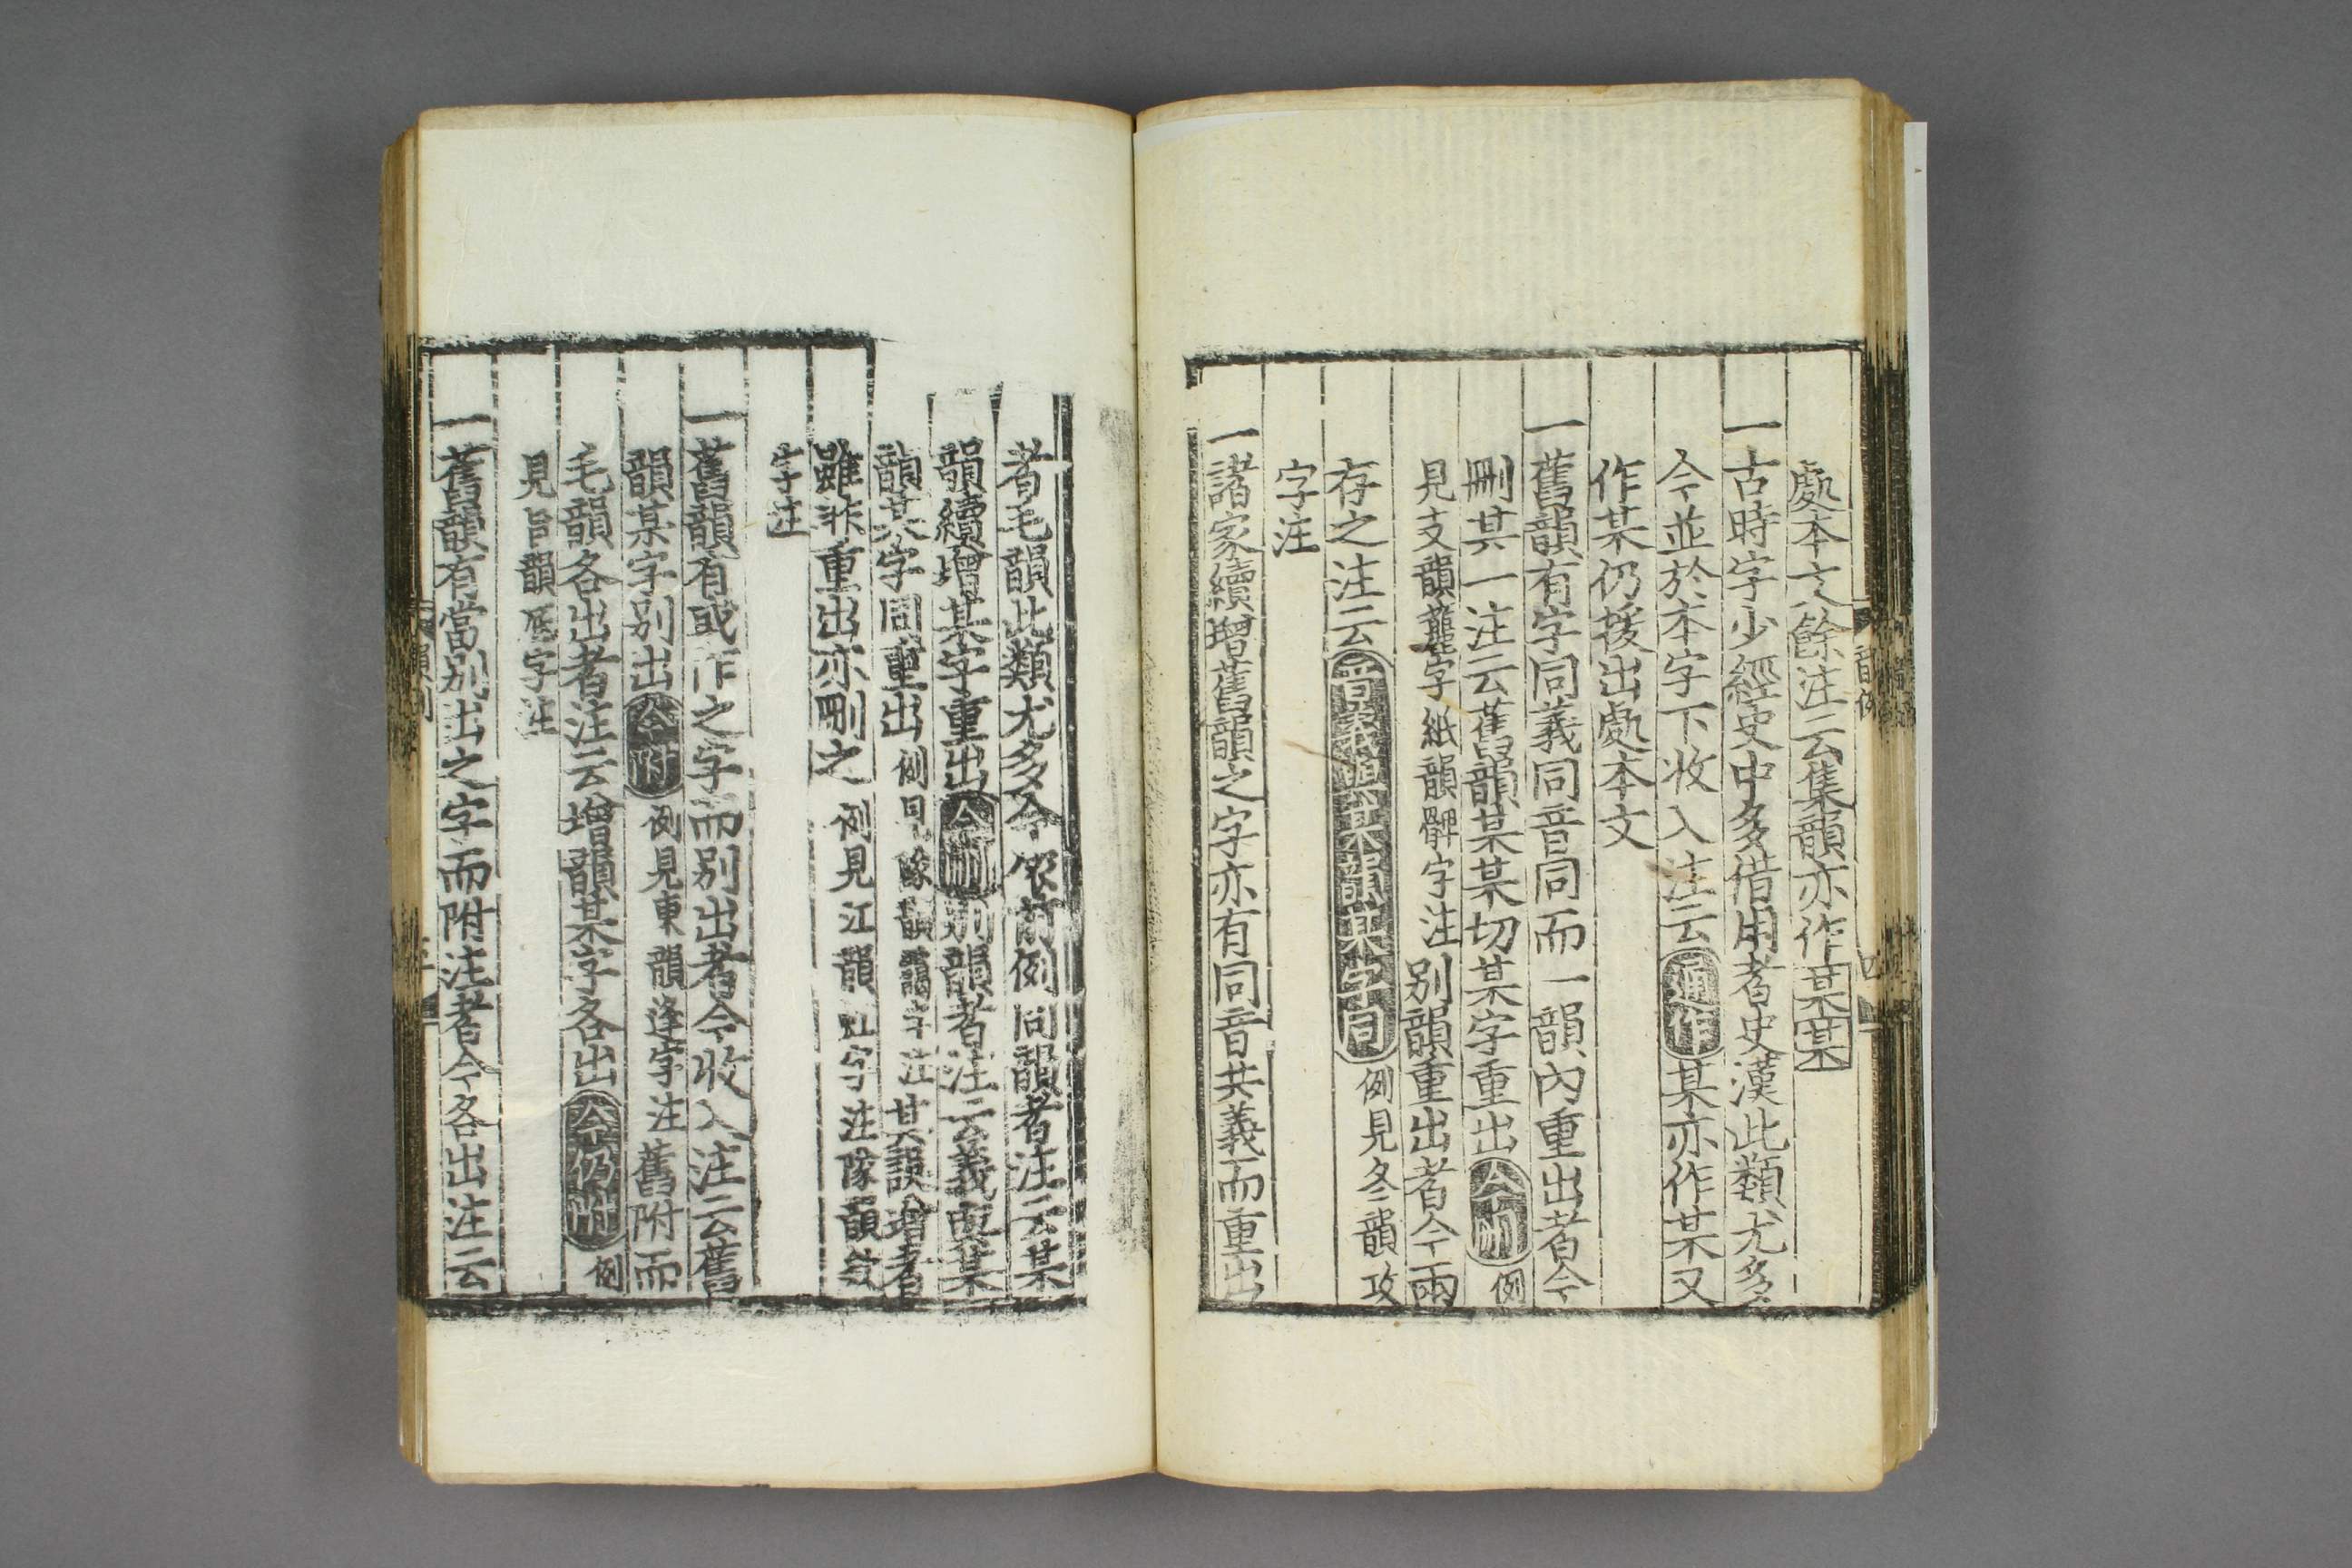 處本文餘注云集韻亦作某某
一古時字少經史中多借用者史漢此類尤多
今並於本字下收入注云通作某亦作某又
作某仍援出處本文
一舊韻有字同義同音同而一韻內重出者今
刪其一注云舊韻某某切某字重出今刪例
見支韻字紙韻髀字注別韻重出者今兩
存之注云音義與某韻某字同例見冬韻攻
字注
一諸家續增舊韻之字亦有同音共義而重出
者毛韻此類尤多今依前例同韻者注云某
韻續增某字重出今刪別韻者注云義與某
韻某字同重出例見隊韻字注其誤增者
雖非重出亦刪之例見江韻字注隊韻
字注
一舊韻有或作之字而別出者今收入注云舊
韻某字別出今附例見東韻逢字注舊附而
毛韻各出者注云增韻某字各出今仍附例
見旨韻字注
一舊韻有當別出之字而附注者今各出注云
韻例
四